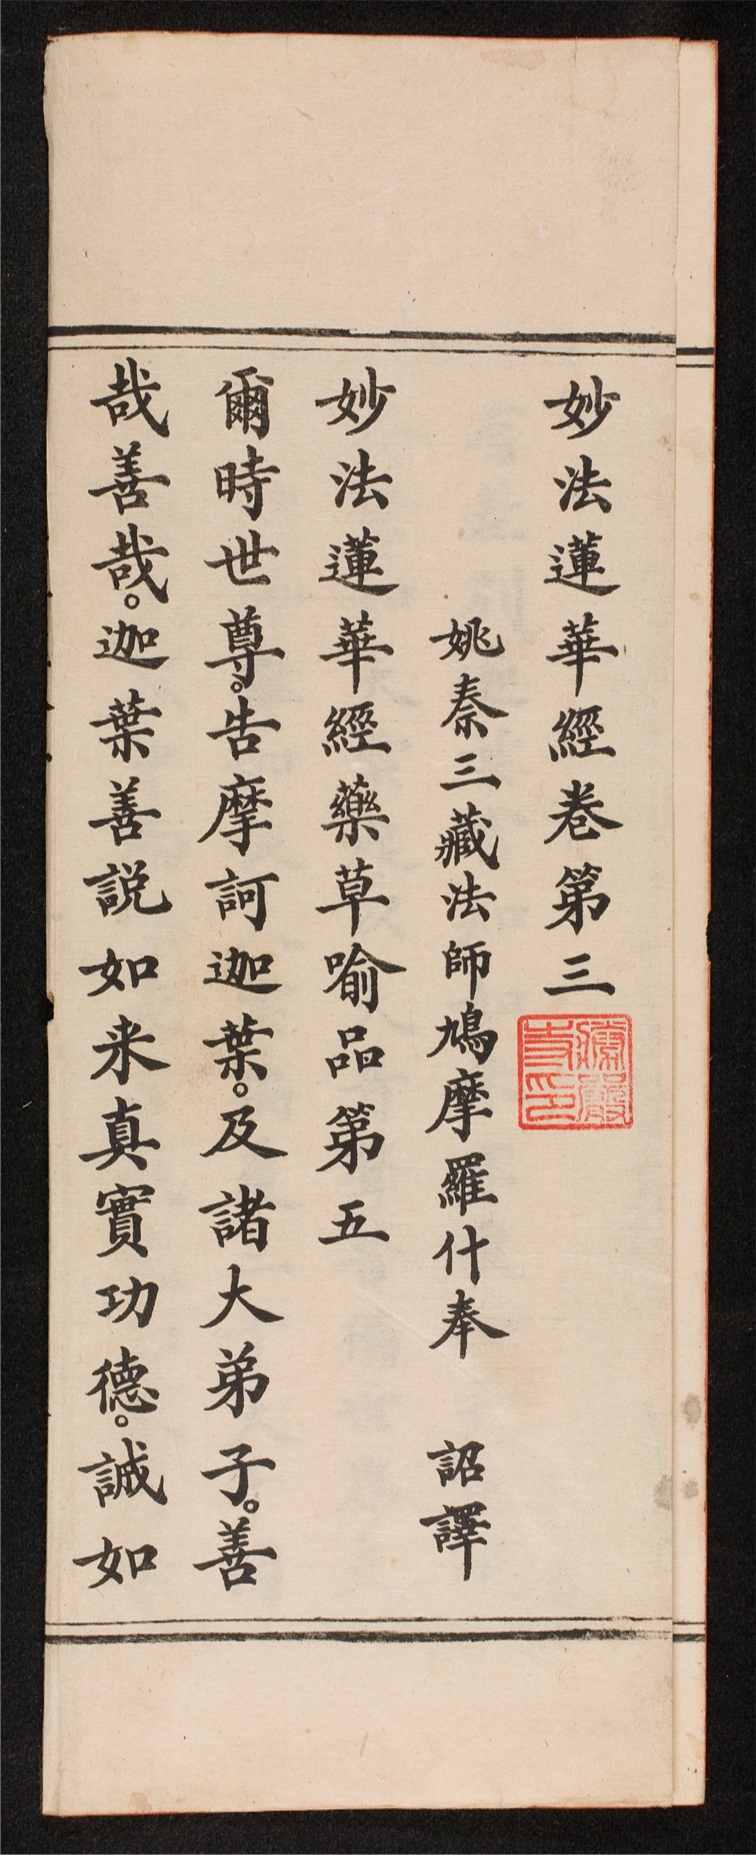 妙法蓮華經卷第三
姚秦三藏法師鳩摩羅什奉 詔譯
妙法蓮華經藥草喻品第五
爾時世尊。告摩訶迦葉。及諸大弟子。善
哉善哉。迦葉善説如来真實功德。誠如